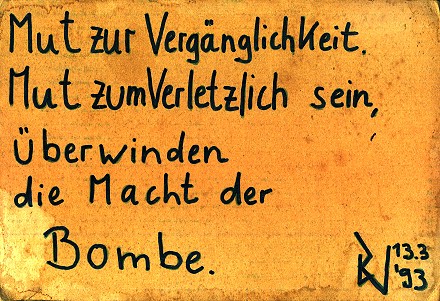 Mut zur Vergänglichkeit.
Mut zum Verletzlich sein,
Überwinden
die Macht der
Bombe.
13.3
'93